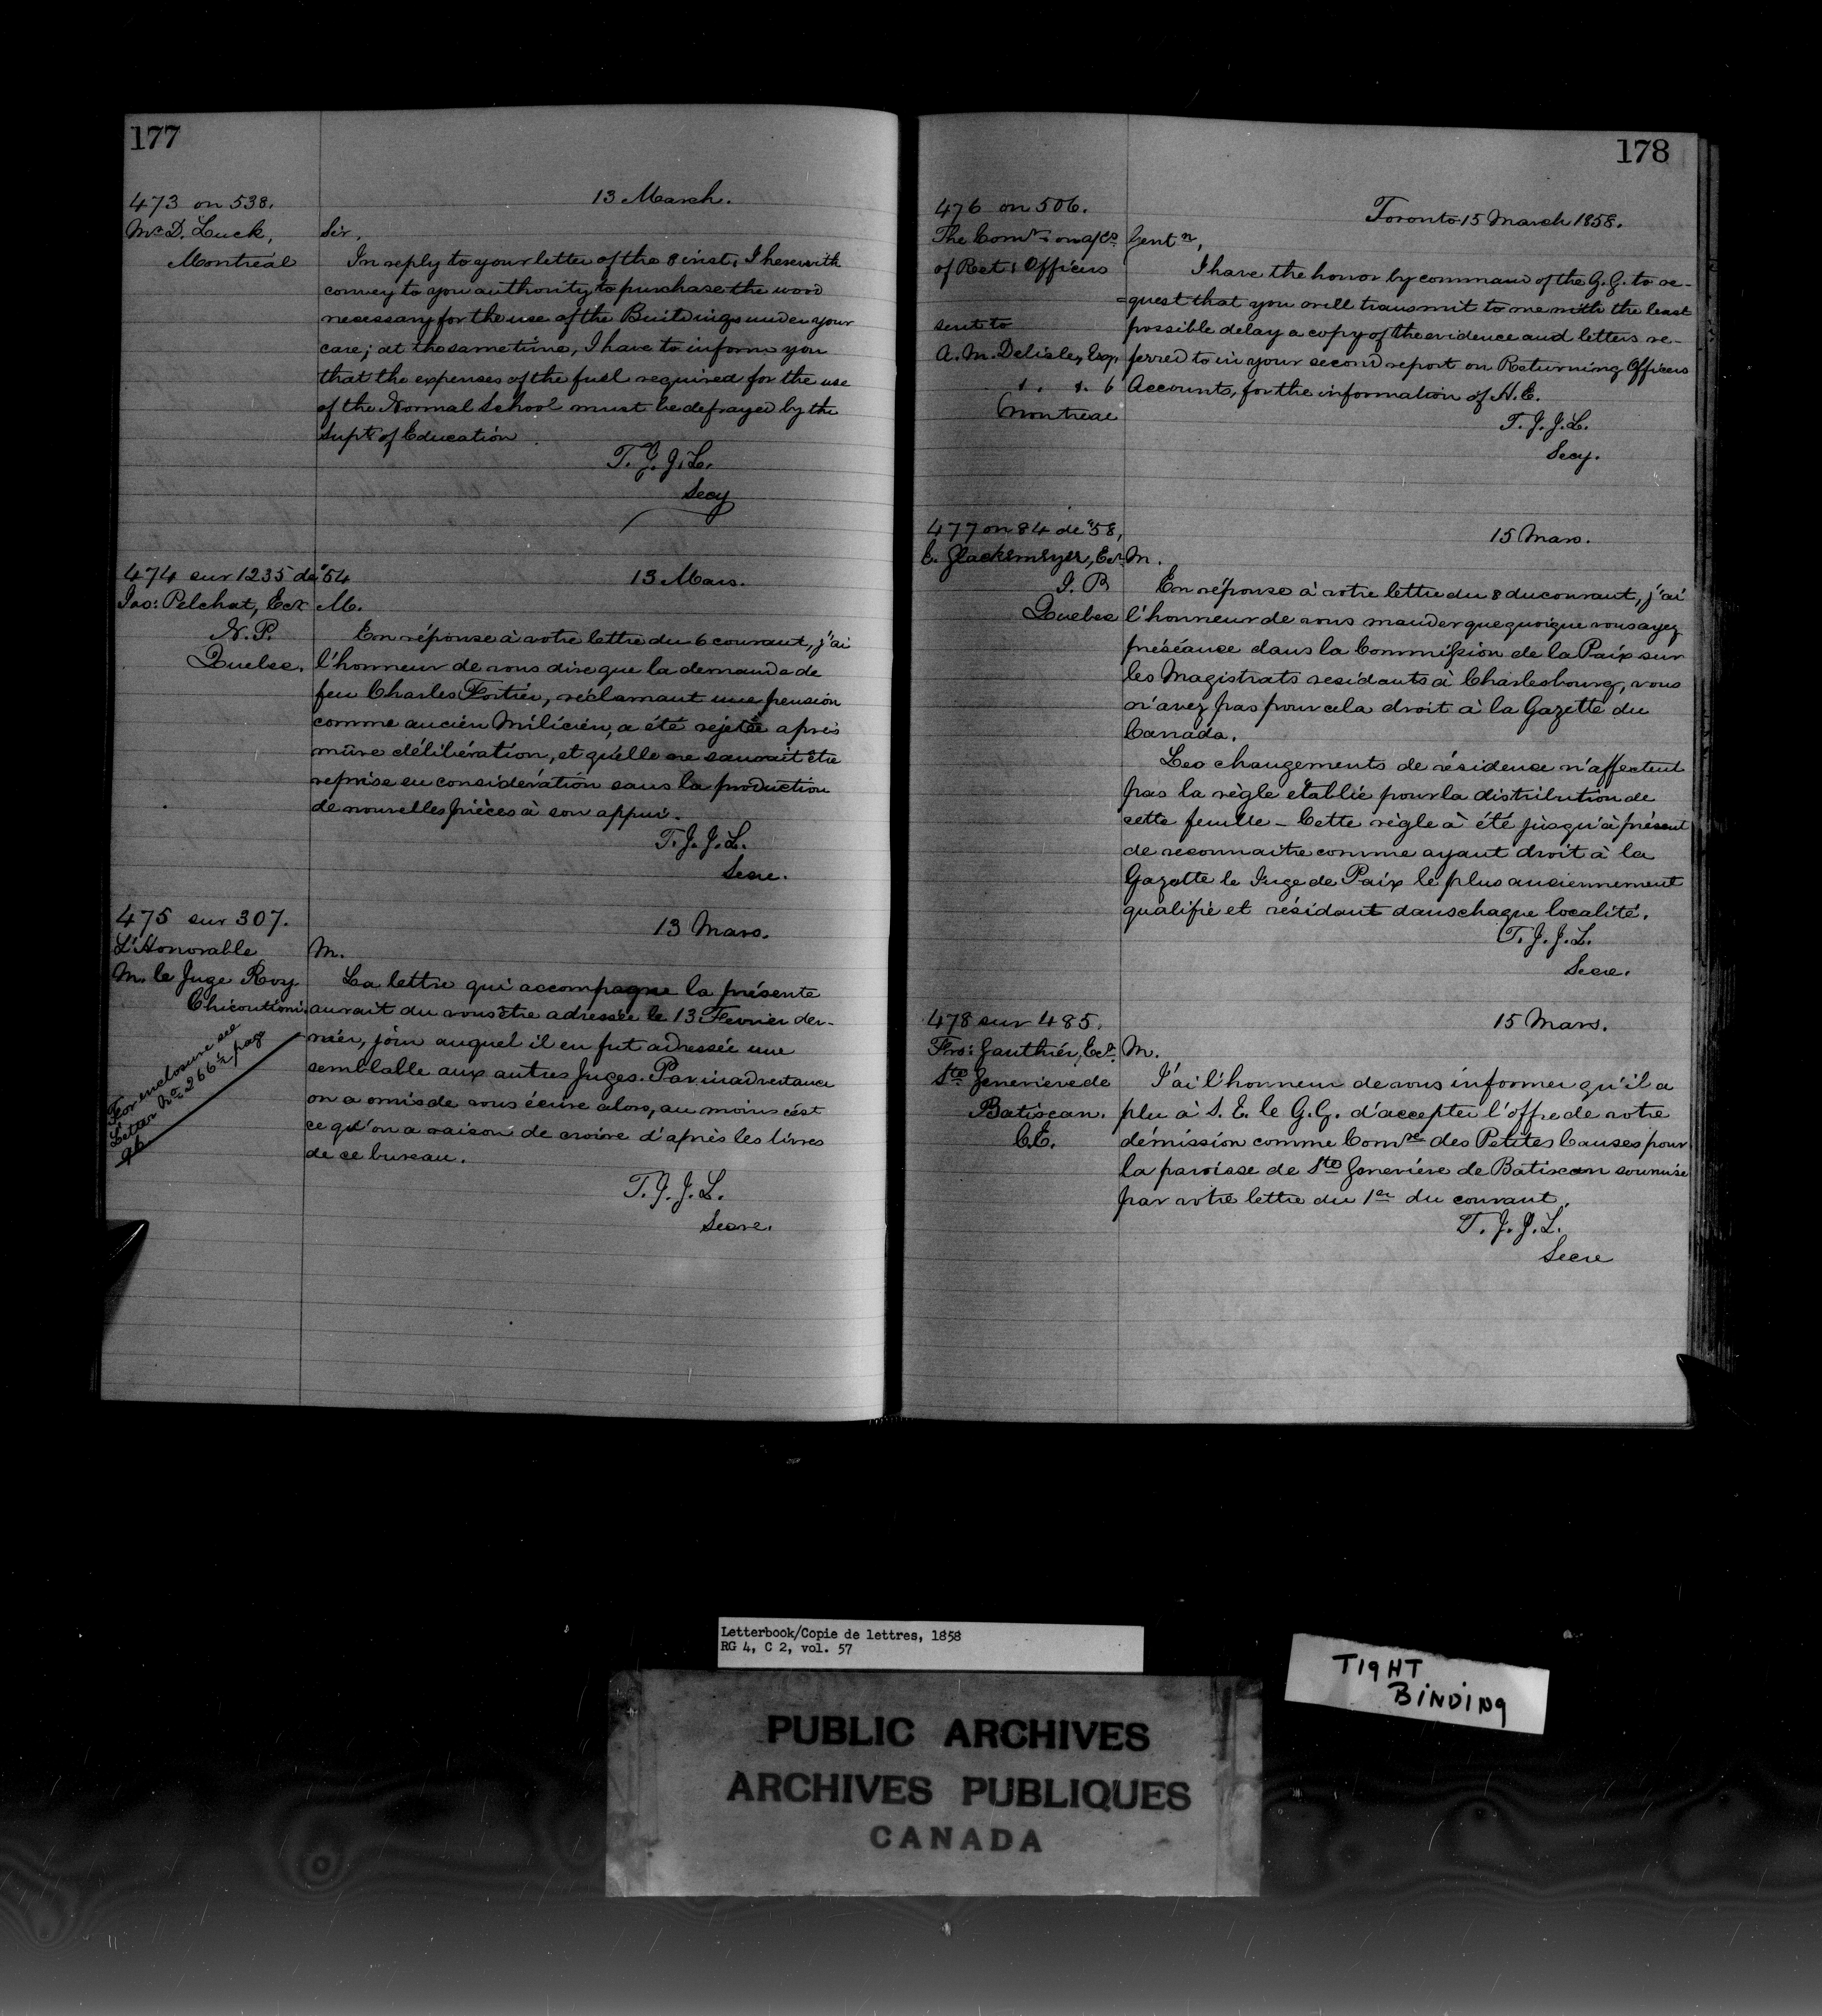 177
473 on 538.
Mr D. Luck,
Montreal
13 March.
Sir,
In reply to your letter of the 8 inst, I herewith
convey to you authority to purchase the wood
necessary for the use of the Buildings under your
care; at the same time, I have to inform you
that the expenses of the fuel required for the use
of the Normal School must be defrayed by the
Supt of Education.
T. J. J. L.
Secy
474 sur 1235 de '54
Jos: Pelchat, Ecr
N. P.
Quebec.
13 Mars.
M.
En réponse à votre lettre du 6 courant, j'ai
l'honneur de vous dire que la demande de
feu Charles Fortier, réclamant une pension
comme ancien Milicien, a été rejetée après
mûre délibération, et qu'elle ne saurait être
reprise en considération sans la production
de nouvelles pièces à son appui.
T. J. J. L.
Secre.
475 sur 307.
L'Honorable
M. le Juge Roy
Chicoutimi
For enclosure see
Letter No 266, pag
96
13 Mars.
M.
La lettre qui accompagne la présente
aurait du vous être adressée le 13 Fevrier der-
nier, jour auquel il en fut adressée une
semblable aux autres Juges. Par inadvertance
on a omis de vous écrire alors, au moins c'est
ce qu'on a raison de croire d'après les livres
de ce bureau.
T. J. J. L.
Secre.
178
476 on 506.
The Comrs on a/cs
of Ret: Officers
sent to
A. M. Delisle, Esq,
Montreal
Toronto 15 March 1858.
Gentn,
I have the honor by command of the G. G. to re-
=quest that you will transmit to me with the least
possible delay a copy of the evidence and letters re-
ferred to in your second report on Returning Officers
Accounts, for the information of H. E.
T. J. J. L.
Secy.
477 on 84 de '58,
E. Glackmeyer, Ecr
J. P.
Quebec
15 Mars.
M.
En réponse à votre lettre du 8 du courant, j'ai
l'honneur de vous mander que quoique vous ayez
préséance dans la Commission de la Paix sur
les Magistrats residants à Charlesbourg, vous
n'avez pas pour cela droit à la Gazette du
Canada.
Les changements de résidence n'affectent
pas la règle etablie pour la distribution de
cette feuille - Cette règle à été jusqu'à présent
de reconnaitre comme ayant droit à la
Gazette le Juge de Paix le plus anciennement
qualifié et résidant dans chaque localité.
T. J. J. L.
Secre.
478 sur 485.
Frs: Gauthier, Ecr
Ste Genevieve de
Batiscan.
C. E.
15 Mars.
M.
J'ai l'honneur de vous informer qu'il a
plu à S. E. le G. G. d'accepter l'offre de votre
démission comme Comre des Petites Causes pour
la paroisse de Ste Geneviève de Batiscan soumise
par votre lettre du 1er du courant.
T. J. J. L.
Secre
Letterbook/Copie de lettres, 1858
RG 4, C 2, vol. 57
TIGHT
BINDING
PUBLIC ARCHIVES
ARCHIVES PUBLIQUES
CANADA